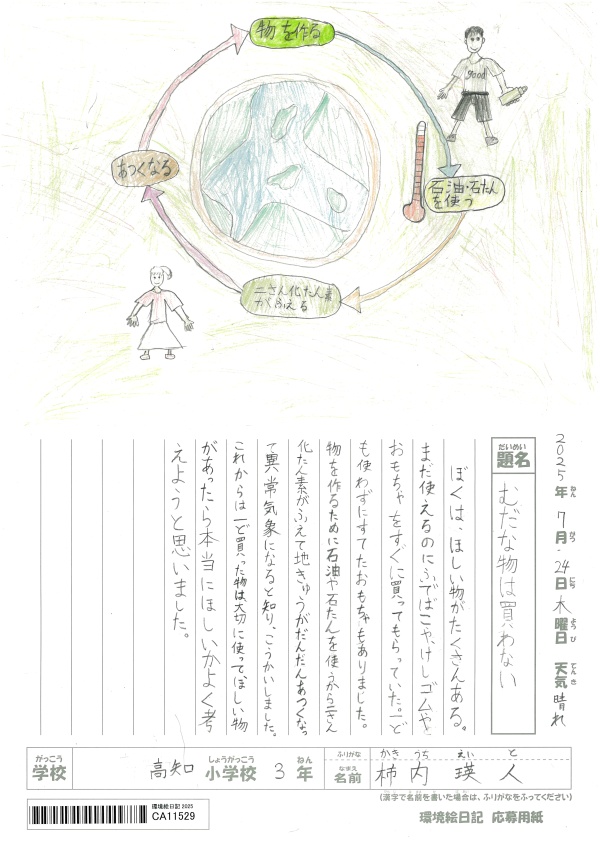 物を作る
good
石油・石たん
を使う
あつくなる
二さん化たん素
がふえる
2025年ねん 7月がつ 24日にち 木曜日ようび 天気てんき 晴れ
題名だいめい むだな物は買わない
ぼくは、ほしい物がたくさんある。
まだ使えるのにふでばこや、けしゴムや
おもちゃをすぐに買ってもらっていた。一ど
も使わずにすてたおもちゃもありました。
物を作るために石油や石たんを使うから二さん
化たん素がふえて地きゅうがだんだんあつくなっ
て異常気象になると知り、こうかいしました。
これからは一ど買った物は大切に使って、ほしい物
があったら本当にほしいかよく考
えようと思いました。
がっこう しょうがっこう ねん ふりがな かき うち えい と
学校 高知 小学校 3 年 なまえ 名前 柿内 瑛人
(漢字で名前を書いた場合は、ふりがなをふってください)
環境絵日記 2025
CA11529
環境絵日記 応募用紙